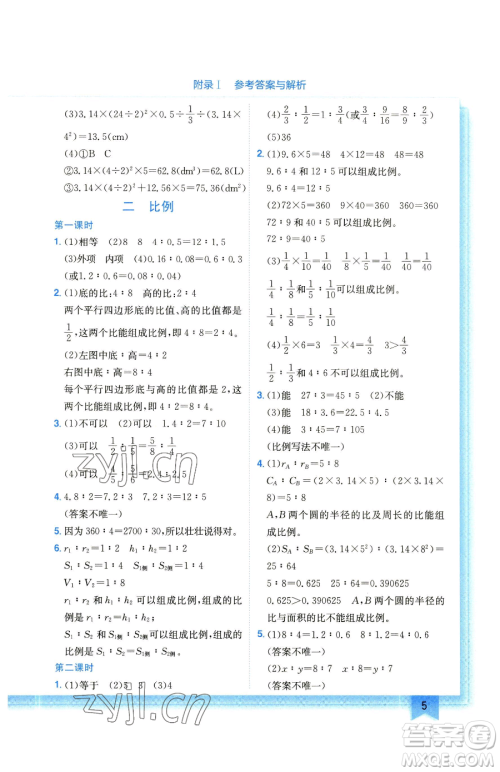 附录Ⅰ 参考答案与解析
(3)3.14×(24÷2)²×0.5÷1/3÷(3.14×
4²)=13.5(cm)
(4)①B C
②3.14×(4÷2)²×5=62.8(dm³)=62.8(L)
③3.14×(4÷2)²+12.56×5=75.36(dm²)
二 比例
第一课时
1. (1)相等 (2)8 8 4∶0.5=12∶1.5
(3)外项 内项 (4)0.16∶0.08=0.12∶0.06
(或1.2∶0.6=0.24∶0.12)
2. (1)底的比:4∶8 高的比:2∶4
两个平行四边形底的比值、高的比值都是
1/2,这两个比能组成比例,即4∶8=2∶4。
(2)左图中底∶高=4∶2
右图中底∶高=8∶4
每个平行四边形底与高的比的比值都是
2,这两个比能组成比例,即4∶2=8∶4。
3. (1)不可以 (2)可以 4∶7=5.2∶9.1
(3)可以 1/2∶1/5=5/8∶1/4
(4)可以
4. 4.8∶2=12∶5 2∶4.8=5∶12
(答案不唯一)
5. 因为360∶4=2700∶30,所以壮壮说得对。
6. r₁∶r₂=1∶2 h₁∶h₂=1∶2
S₁∶S₂=1∶4 S₁侧∶S₂侧=1∶4
V₁∶V₂=1∶8
r₁∶r₂和h₁∶h₂可以组成比例,组成的
比例是r₁∶r₂=h₁∶h₂;
S₁∶S₂和S₁侧∶S₂侧可以组成比例,组成
的比例是S₁∶S₂=S₁侧∶S₂侧。
第二课时
1. (1)等于 (2)5 3 (3)4
(4)2/3∶1/2=1∶3/4(或3/4∶9/16=8/9∶2/3)
(5)36
2. (1)9.6×5=48 4×12=48 48=48
9.6∶4和12∶5可以组成比例。
9.6∶4=12∶5
(2)72×5=360 9×40=360 360=360
72∶9和40∶5可以组成比例。
72∶9=40∶5
(3)1/4×1/10=1/40 1/8×1/5=1/40 1/40=1/40
1/4∶1/8和1/5∶1/10可以组成比例。
1/4∶1/8=1/5∶1/10
(4)1/2×6=3 1/3×4=4/3 3>4/3
1/2∶1/3和4∶6不可以组成比例。
3. (1)能 27∶3=45∶5 (2)不能
(3)能 18∶3.6=22.5∶4.5
(4)能 3∶45=7∶105
(比例写法不唯一)
4. (1)r_A∶r_B=5∶8
C_A∶C_B=(2×3.14×5)∶(2×3.14
×8)=5∶8
A,B两个圆的半径的比及周长的比能组成
比例。
(2)S_A∶S_B=(3.14×5²)∶(3.14×8²)=
25∶64
5∶8=0.625 25∶64=0.390625
0.625>0.390625 A,B两个圆的半径的比
与面积的比不能组成比例。
5. (1)8∶4=1.2∶0.6 8∶1.2=4∶0.6
(答案不唯一)
(2)x∶y=8∶7 x∶8=y∶7
(答案不唯一)
5
zyj.cn
zyj.cn
答案圈
MXQE.COM